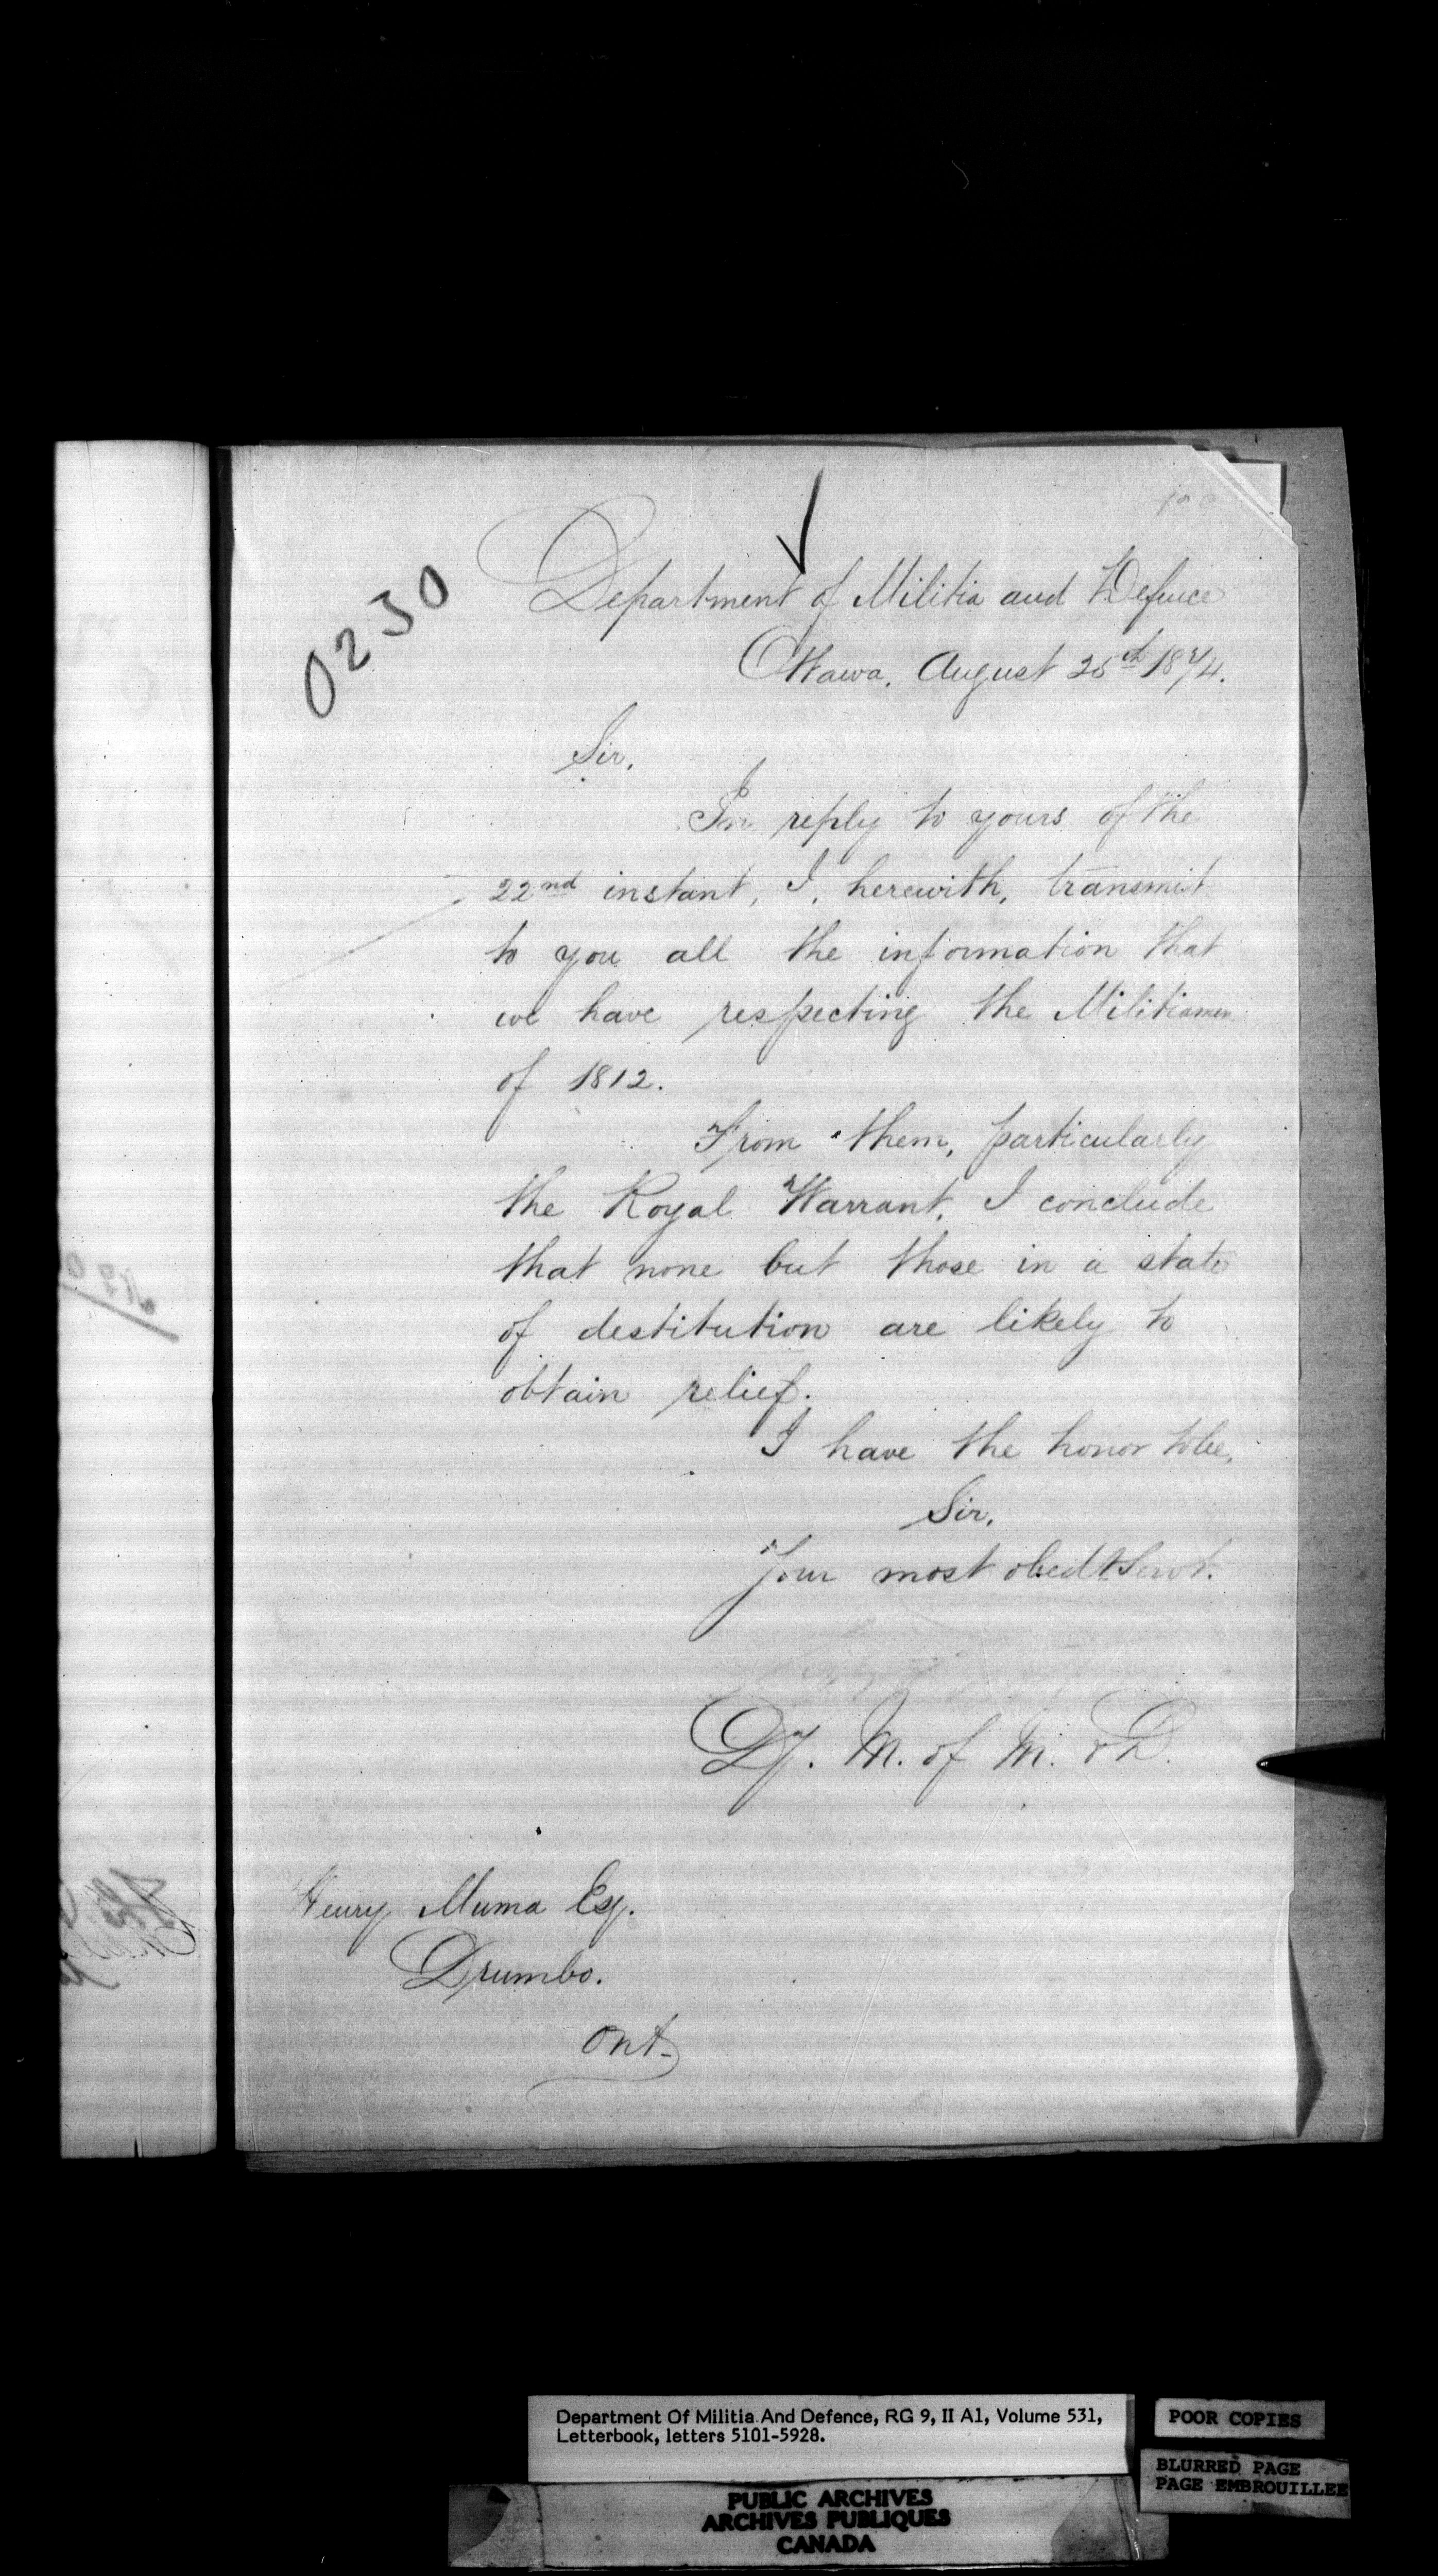 0230
Department of Militia and Defence
Ottawa, August 25th 1874.
Sir,
In reply to yours of the
22nd instant, I, herewith, transmit
to you all the information that
we have respecting the Militiamen
of 1812.
From them, particularly
the Royal Warrant, I conclude
that none but those in a state
of destitution are likely to
obtain relief.
I have the honor to be,
Sir,
Your most obedt Servt.
Dy. M. of M. & D.
Henry Muma Esq.
Drumbo.
Ont.
Department Of Militia And Defence, RG 9, II A1, Volume 531,
Letterbook, letters 5101-5928.
POOR COPIES
BLURRED PAGE
PAGE EMBROUILLEE
PUBLIC ARCHIVES
ARCHIVES PUBLIQUES
CANADA